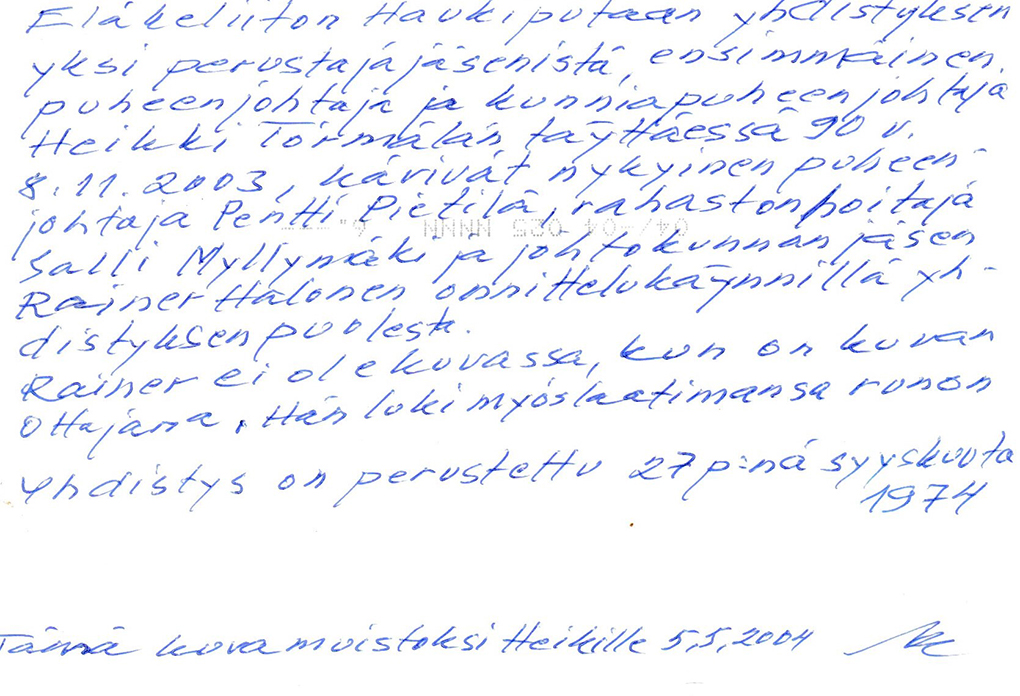 Eläkeliiton Haukiputaan yhdistyksen
yksi perustajajäsenistä, ensimmäinen
puheenjohtaja ja kunniapuheenjohtaja
Heikki Törmälän täyttäessä 90 v.
8.11.2003, kävivät nykyinen puheen-
johtaja Pentti Pietilä, rahastonhoitaja
Salli Myllymäki ja johtokunnan jäsen
Rainer Halonen onnittelukäynnillä yh-
distyksen puolesta.
Rainer ei ole kuvassa, kun on kuvan
ottajana. Hän luki myös laatimansa runon
Yhdistys on perustettu 27 p:nä syyskuuta
1974
Tämä kuva muistoksi Heikille 5,5,2004